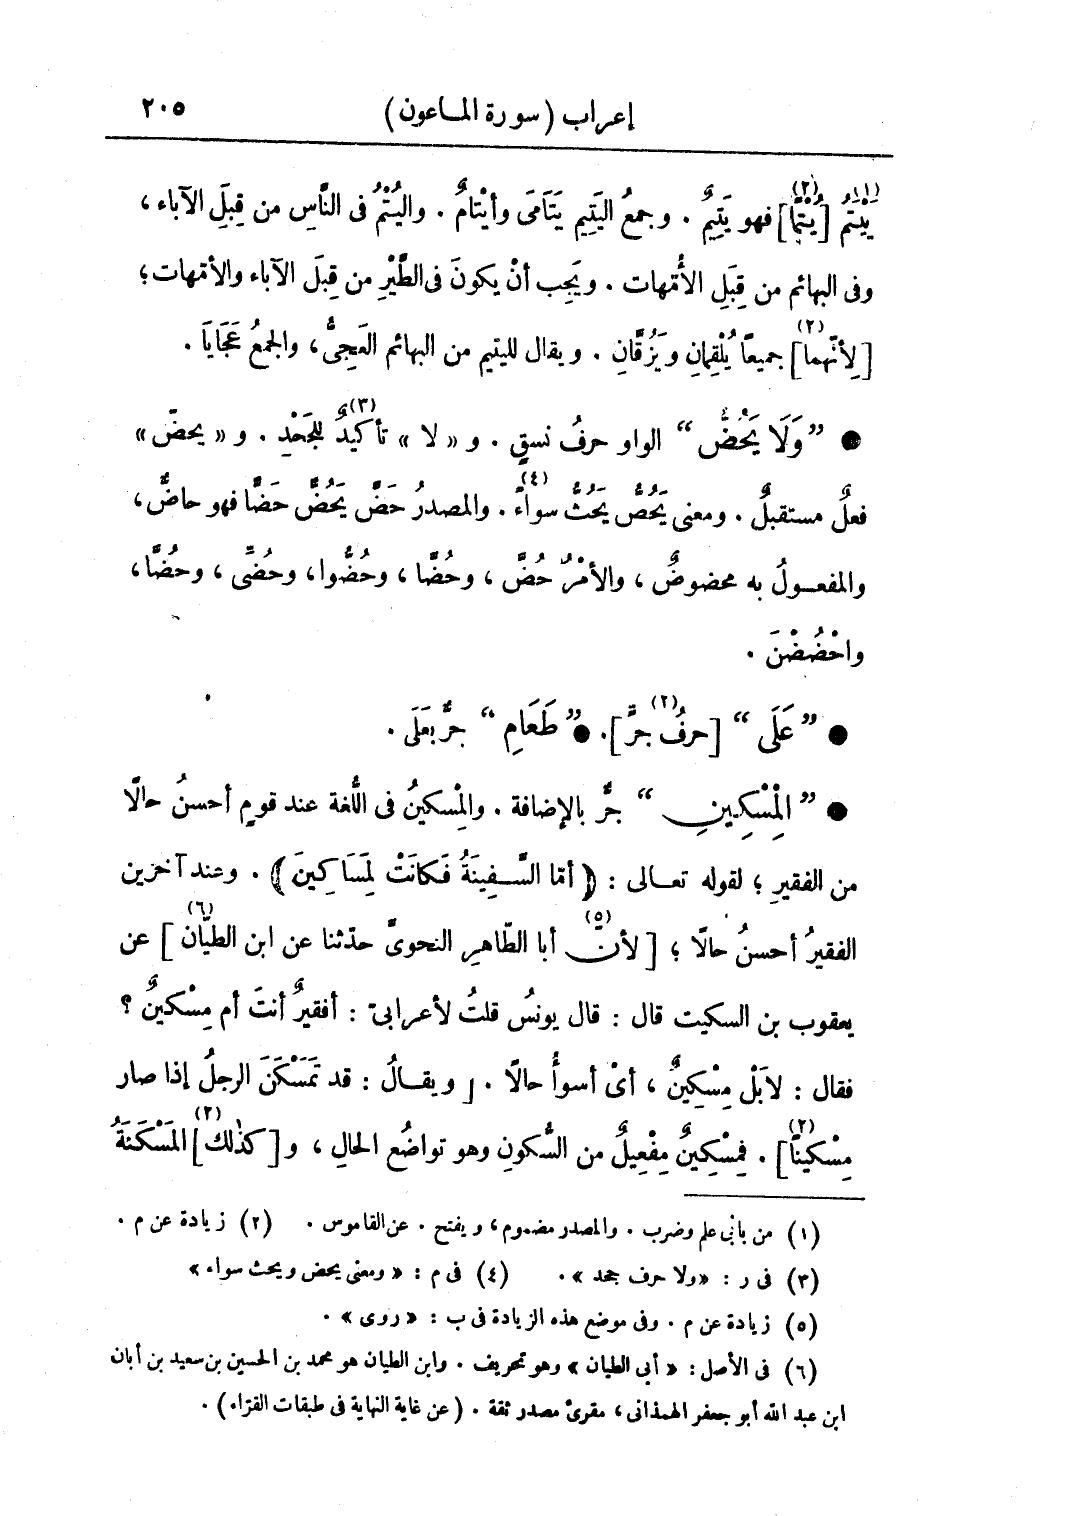 إعراب (سورة الماعون) ٢٠٥
يَيْتَمُ (١) [يُتْمًا] (٢) فهو يَتِيمٌ . وجمعُ اليَتِيمِ يَتَامَى وأيْتامٌ . واليُتْمُ فى النَّاسِ من قِبَلِ الآباء ،
وفى البهائم من قِبَلِ الأُمّهات . ويَجِب أنْ يكونَ فى الطَّيْرِ من قِبَلَ الآباء والأمّهات ؛
[لِأنّهما] (٢) جميعًا يُلْقِمانِ ويَزُقَّانِ . ويقال لليتيم من البهائم العَجِىُّ ، والجمعُ عَجَايَا .
● ”وَلَا يَحُضُّ“ الواو حرفُ نسقٍ . و « لا » تأكيدٌ (٣) للجَحْدِ . و « يحضّ »
فعلٌ مستقبلٌ . ومعنى يَحُضُّ يَحُثُّ سواءً (٤) . والمصدرُ حَضَّ يَحُضُّ حَضًّا فهو حاضٌّ ،
والمفعـولُ به محضوضٌ ، والأمْرُ حُضَّ ، وحُضَّا ، وحُضُّوا ، وحُضِّى ، وحُضَّا ،
واحْضُضْنَ .
● ”عَلَى“ [حرفُ جرٍّ] (٢) . ● ”طَعَامِ“ جرٌّ بعَلَى .
● ”الْمِسْكِينِ“ جرٌّ بالإضافة . والمِسْكينُ فى اللُّغة عند قومٍ أحسنُ حالًا
من الفقيرِ ؛ لقوله تعـالى : ﴿ أمّا السَّـفِينَةُ فَكانَتْ لِمَسَاكِينَ ﴾ . وعند آخرين
الفقيرُ أحسنُ حالًا ؛ [لأنّ (٥) أبا الطّاهرِ النحوىَّ حدّثنا عن ابن الطيّان (٦)] عن
يعقوب بن السكيت قال : قال يونسُ قلتُ لأعرابىّ : أفقيرٌ أنتَ أم مِسْكينٌ ؟
فقال : لا بَلْ مِسْكِينٌ ، أىْ أسوأُ حالًا . [ويقـالُ : قد تَمَسْكَنَ الرجلُ إذا صار
مِسْكينًا] (٢) . فمِسْكِينٌ مِفْعِيلٌ من السُّكونِ وهو تواضُع الحالِ ، و [كذلك] (٢) المَسْكَنَةُ
(١) من بابى علم وضرب . والمصدر مضموم ، ويفتح . عن القاموس . (٢) زيادة عن م .
(٣) فى ر : «ولا حرف جحد» . (٤) فى م : «ومعنى يحض ويحث سواء»
(٥) زيادة عن م . وفى موضع هذه الزيادة فى ب : «روى» .
(٦) فى الأصل : «أبى الطيان» وهو تحريف . وابن الطيان هو محمد بن الحسين بن سعيد بن أبان
ابن عبد الله أبو جعفر الهمذانى ، مقرئ مصدر ثقة . (عن غاية النهاية فى طبقات القرّاء) .